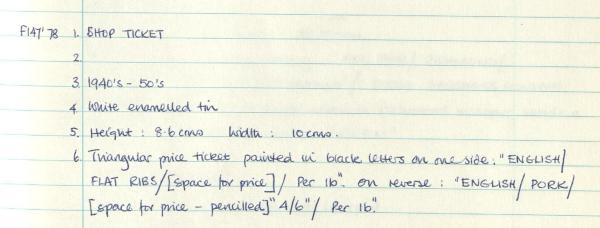 F147'78 1. SHOP TICKET
2.
3. 1940's - 50's
4. White enamelled tin
5. Height : 8.6 cms Width : 10 cms.
6. Triangular price ticket painted in black letters on one side: "ENGLISH/
FLAT RIBS/[space for price]/ Per lb". On reverse : "ENGLISH/ PORK/
[space for price - pencilled]" 4/6"/ Per lb".